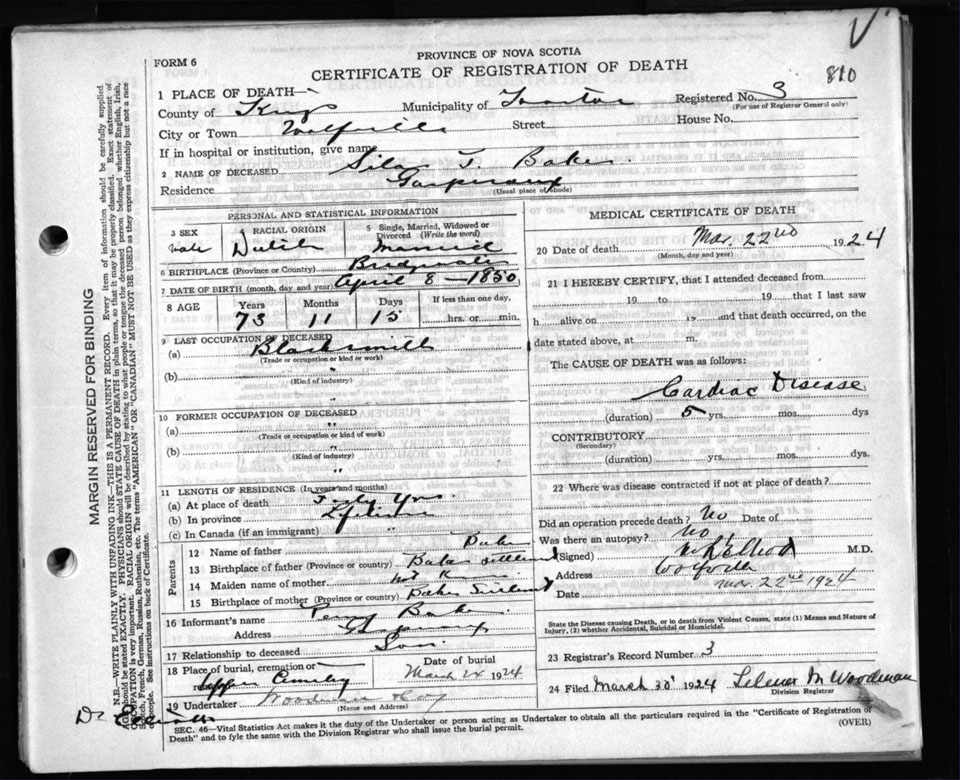 FORM 6
PROVINCE OF NOVA SCOTIA
CERTIFICATE OF REGISTRATION OF DEATH
810
1 PLACE OF DEATH—
Registered No. 3
(For use of Registrar General only)
County of Kings Municipality of
City or Town Wolfville Street House No.
If in hospital or institution, give name
2 NAME OF DECEASED Silas T. Baker
Residence Gaspereaux
(Usual place of abode)
PERSONAL AND STATISTICAL INFORMATION
3 SEX
Male
RACIAL ORIGIN
Dutch
5 Single, Married, Widowed or Divorced (Write the word)
Married
6 BIRTHPLACE (Province or Country) Bridgewater
7 DATE OF BIRTH (month, day and year) April 8 - 1850
8 AGE Years Months Days If less than one day,
73 11 15 hrs. or min.
9 LAST OCCUPATION OF DECEASED
(a) Blacksmith
(Trade or occupation or kind of work)
(b)
(Kind of industry)
"
10 FORMER OCCUPATION OF DECEASED
(a) "
(Trade or occupation or kind of work)
(b) "
(Kind of industry)
"
11 LENGTH OF RESIDENCE (In years and months)
(a) At place of death Forty Yrs.
(b) In province Lifetime
(c) In Canada (if an immigrant) "
Parents
12 Name of father Baker
13 Birthplace of father (Province or country) Baker Settlement
14 Maiden name of mother Not
15 Birthplace of mother (Province or country) Baker Settlement
16 Informant's name Percy Baker
Address Gaspereaux
17 Relationship to deceased Son
18 Place of burial, cremation or
Date of burial
March 24 1924
19 Undertaker Woodman
(Name and Address)
MEDICAL CERTIFICATE OF DEATH
20 Date of death Mar. 22nd 1924
(Month, day and year)
21 I HEREBY CERTIFY, that I attended deceased from
19 to 19 that I last saw
h alive on 19 and that death occurred, on
date stated above, at m.
The CAUSE OF DEATH was as follows:
Cardiac Disease
(duration) 5 yrs. mos. dys
CONTRIBUTORY
(Secondary)
(duration) yrs. mos. dys.
22 Where was disease contracted if not at place of death?
Did an operation precede death? No Date of
Was there an autopsy? No
(Signed) M.D.
Address Wolfville
Date Mar. 22nd 1924
State the Disease causing Death, or in death from Violent Causes, state (1) Means and Nature of Injury, (2) whether Accidental, Suicidal or Homicidal.
23 Registrar's Record Number 3
24 Filed March 30 1924 M Woodman
Division Registrar
SEC. 46—Vital Statistics Act makes it the duty of the Undertaker or person acting as Undertaker to obtain all the particulars required in the "Certificate of Registration of
Death" and to fyle the same with the Division Registrar who shall issue the burial permit.
(OVER)
MARGIN RESERVED FOR BINDING
N.B.—WRITE PLAINLY WITH UNFADING INK—THIS IS A PERMANENT RECORD. Every item of information should be carefully supplied.
AGE should be stated EXACTLY. PHYSICIANS should STATE CAUSE OF DEATH in plain terms, so that it may be properly classified. Exact statement of
OCCUPATION is very important. RACIAL ORIGIN will be described by stating to what people or tongue the deceased person belonged whether English, Irish,
Scotch, French, German, Russian, Ruthenian, etc. The terms "AMERICAN" or "CANADIAN" MUST NOT BE USED as they express citizenship but not a race
or people. See instructions on back of Certificate.